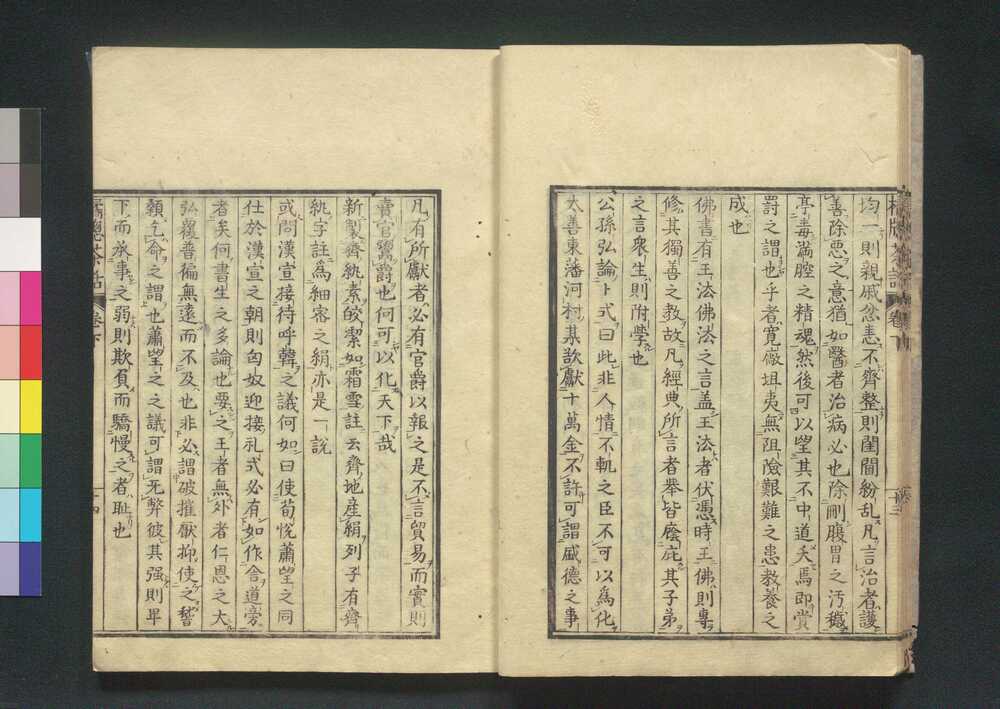 均一則親戚忿恚不齊整則閨閫紛乱凡言治者護
善除惡之意猶如醫者治病必也除刪腹胃之汚穢
亭毒満腔之精魂然後可以望其不中道夭焉即賞
罸之謂也乎者寛厰坦夷無阻險艱難之患教養之
成也
佛書有王法佛法之言盖王法者伏憑時王佛則專
修其獨善之教故凡經典所言者舉皆廕庇其子弟
之言衆生則附學也
公孫弘論卜式曰此非人情不軌之臣不可以為化
太善東藩河村某欵獻十萬金不許可謂盛德之事
橘牕茶話 卷下 十三
凡有所獻者必有官爵以報之是不言貿易而實則
賣官鬻爵也何可以化天下哉
新製齊紈素皎潔如霜雪註云齊地産絹列子有齊
紈字註為細密之絹亦是一説
或問漢宣接待呼韓之議何如曰使荀悅蕭望之同
仕於漢宣之朝則匈奴迎接礼式必有如作舎道旁
者矣何書生之多論也要之王者無外者仁恩之大
弘覆普徧無遠而不及也非必謂破摧厭抑使之稽
顙乞命之謂也蕭望之之議可謂无弊彼其强則畢
下而承事之弱則欺負而驕慢之者耻也
橘牕茶話 卷下 十四